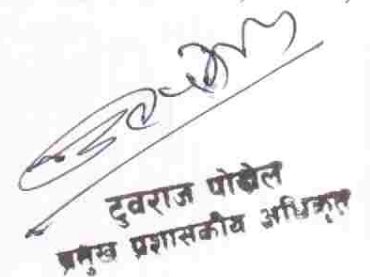 दुवराज पोखेल
प्रमुख प्रशासकीय अधिकृत